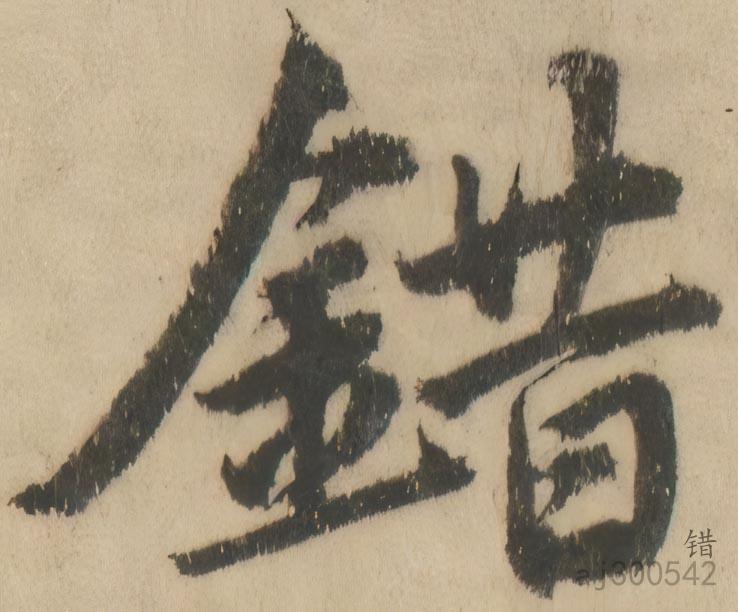 錯
错
aj300542